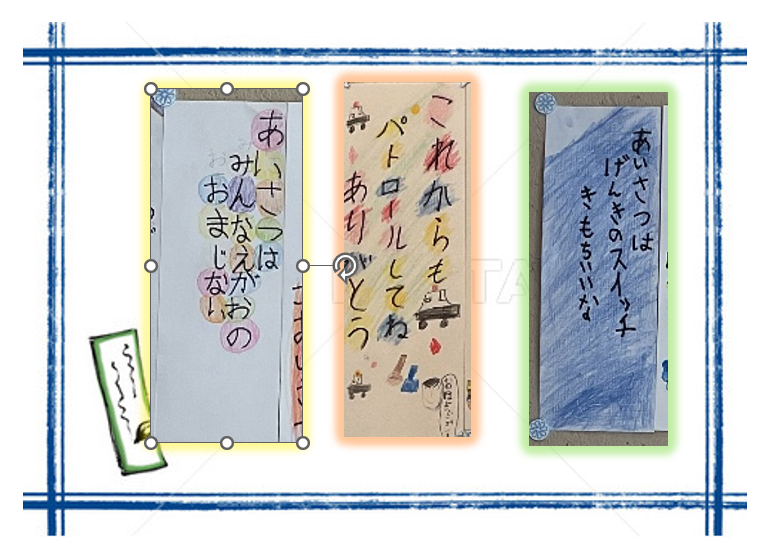 あいさつは
みんなえがおの
おまじない
これからも
パトロールしてね
ありがとう
あいさつは
げんきのスイッチ
きもちいいな